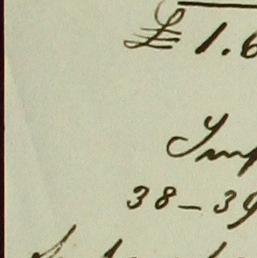 £ 1.6
Imp
38-39